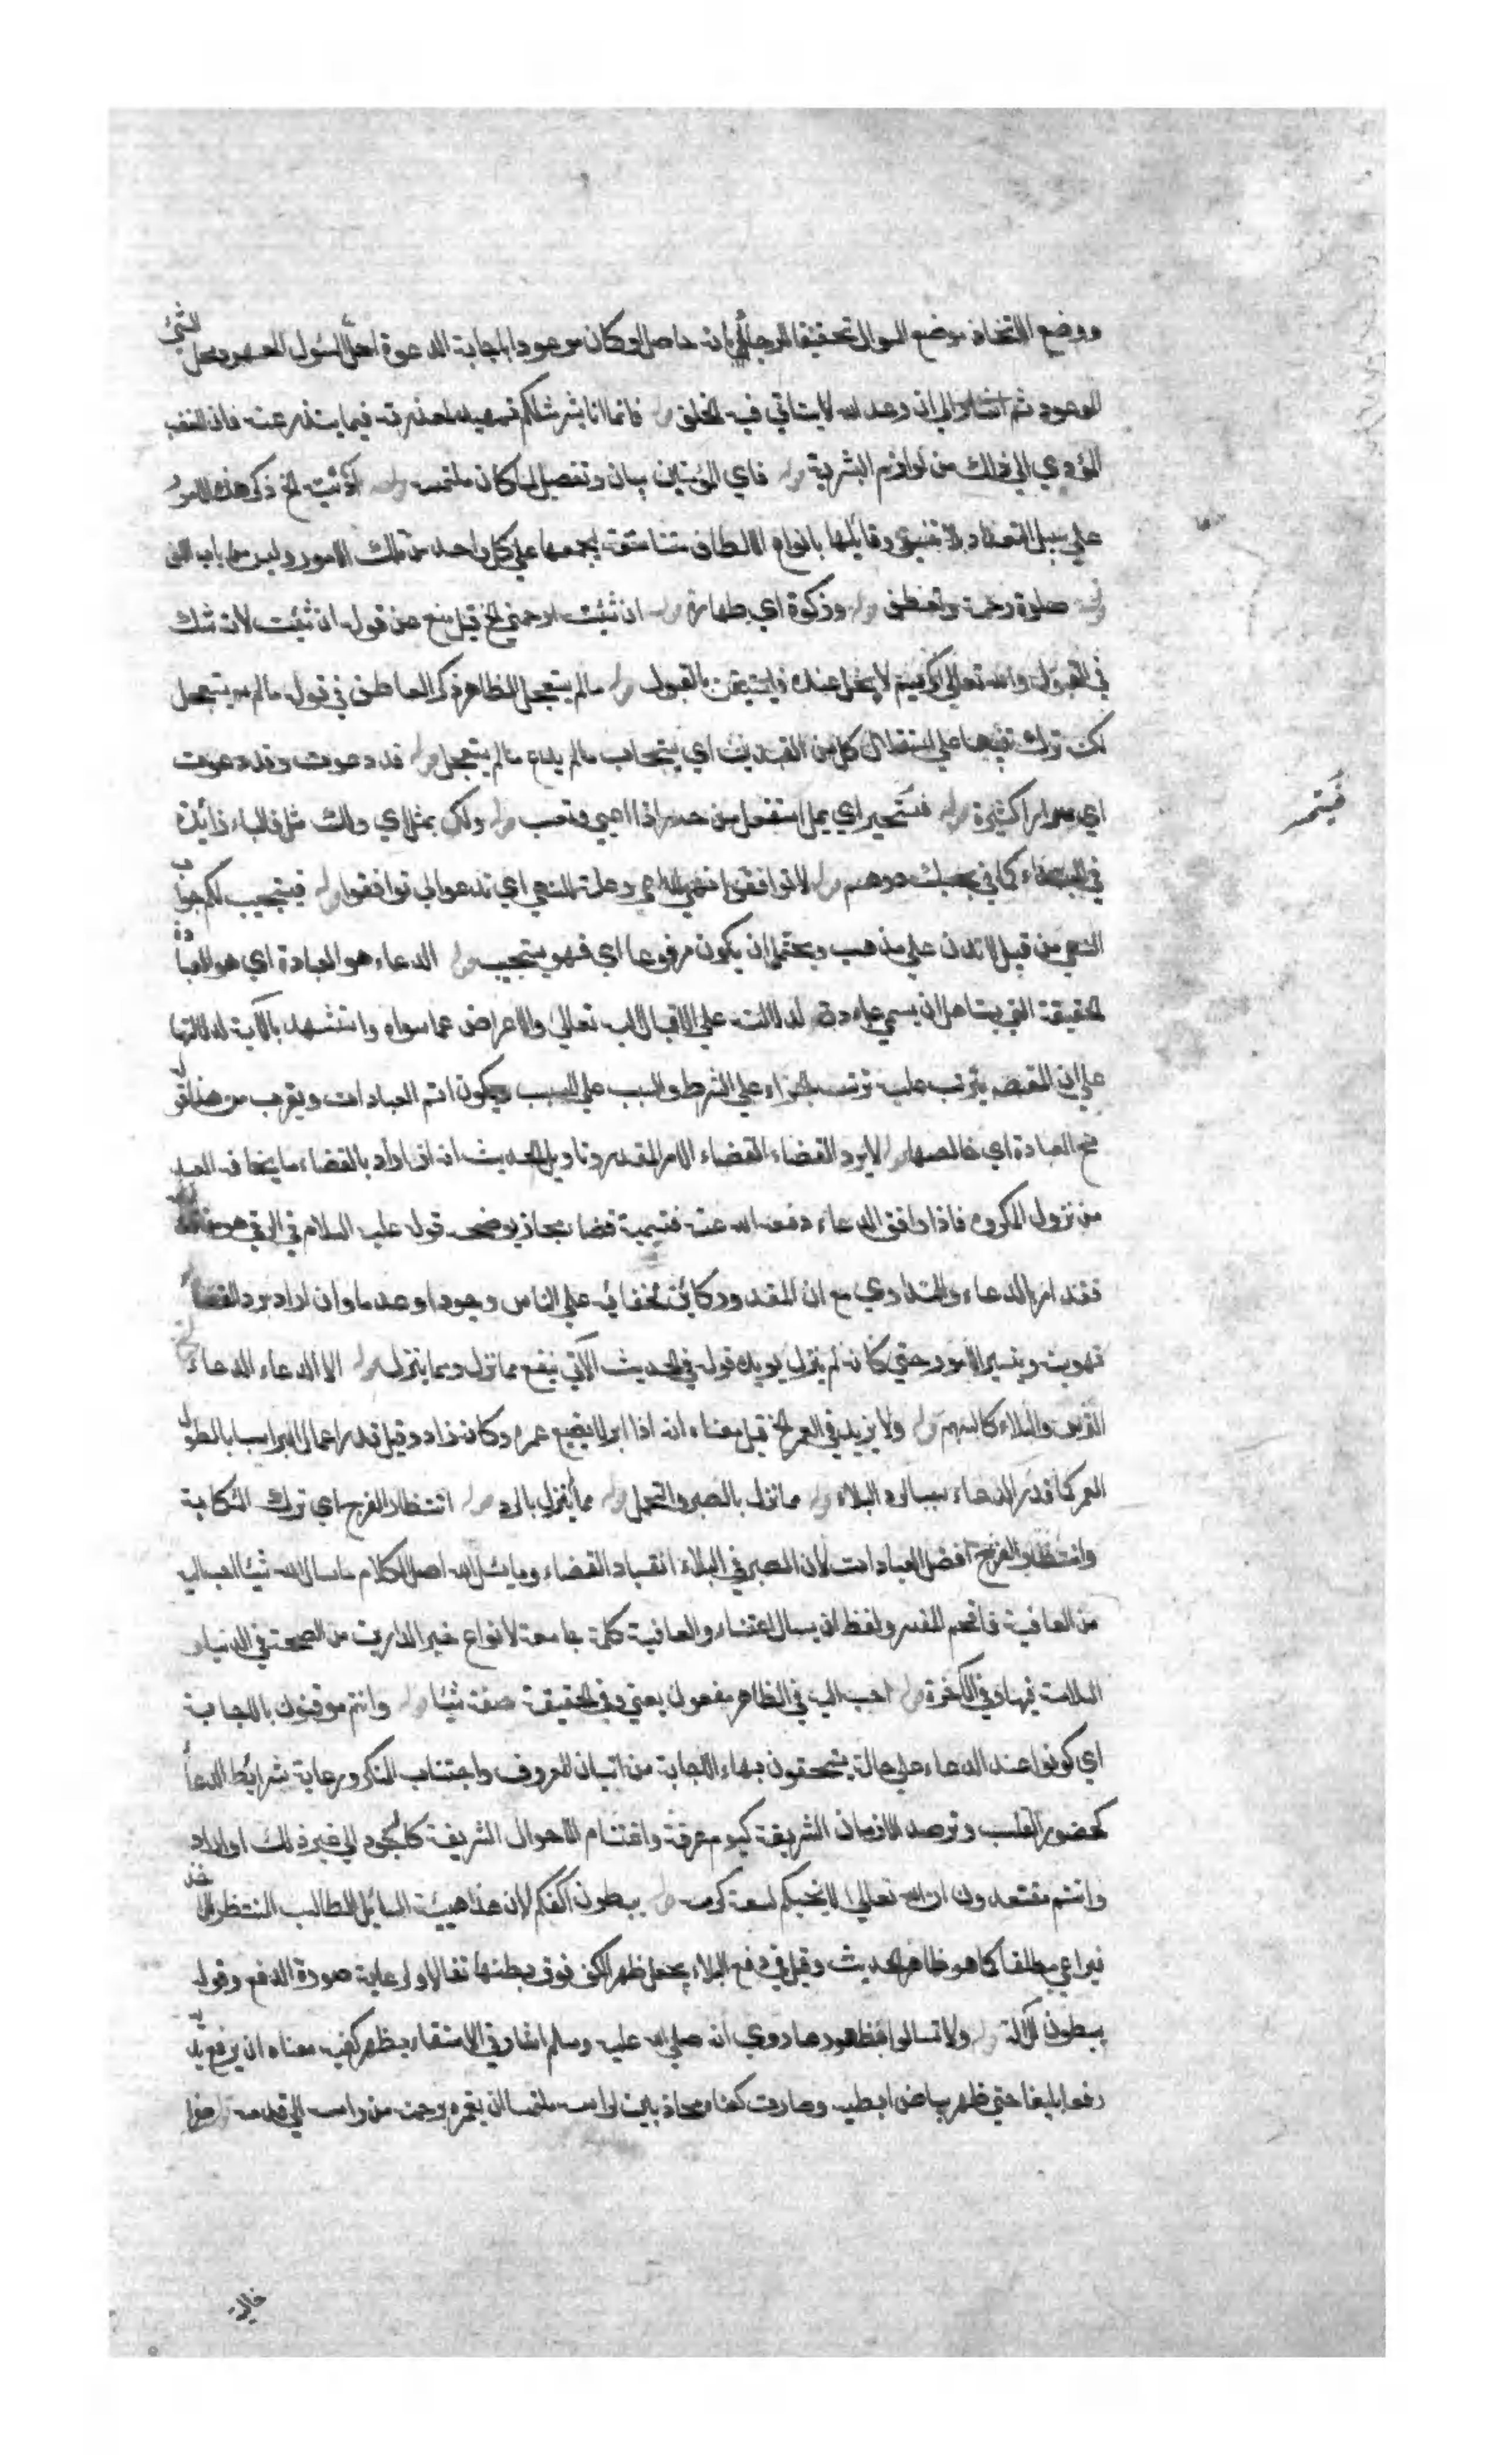 ووضع الاتخاذ موضع السوال تحقيقا للرجاء بانه حاصل وكان موعودا باجابة الدعوة احل المسئول المعهود محل الشئ
الموعود ثم اشار الى ان وعد الله لا يتاتي فيه الخلف قوله فانما انا بشر مثلكم تمهيد لمعذرته فيما يتندر عنه فان الغضب
المؤدي الى ذلك من لوازم البشرية قوله فاي المؤمنين بيان وتفصيل لما كان ملتمسه قوله آذيته الخ ذكر هذه الامور
على سبيل التعداد بلا تنسيق وقابلها بانواع الالطاف متناسقة ليجمعها على كل واحد من تلك الامور وليس من باب اللف
قوله صلوة رحمة وتعطف قوله وزكوة اي طهارة قوله ان شئت ارحمني الخ قيل منع عن قوله ان شئت لانه شك
في القبول والله تعالى كريم لا بخل عنده فليستيقن بالقبول قوله ما لم يستعجل الظاهر ذكر العاطف في قوله ما لم يستعجل
لكنه ترك تنبيها على استقلال كل من القيدين اي يستجاب ما لم يدع ما لم يستعجل قوله قد دعوت وقد دعوت
اي مرارا كثيرة قوله فيستحسر اي يمل استفعل من حسر اذا اعيى وتعب قوله ولك بمثل اي ولك مثل فالباء زائدة
في المبتداء كما في بحسبك درهم قوله لا توافقوا نهي للداعي وعلة للنهي اي لا تدعوا لئلا توافقوا قوله فيستجيب لكم جواب
النهي من قبيل لا تدن على مذهب ويحتمل ان يكون مرفوعا اي فهو يستجيب قوله الدعاء هو العبادة اي هو العبادة
الحقيقة التي يستاهل ان يسمى عبادة لدلالته على الاقبال الى الله تعالى والاعراض عما سواه واستشهد بالآية لدلالتها
على ان المقصد يترتب عليه ترتب الجزاء على الشرط والسبب على المسبب ويكون اتم العبادات ويقرب من هذا قوله
مخ العبادة اي خالصها قوله لا يرد القضاء القضاء الامر المقدر وتاويل الحديث انه ان اراد بالقضاء ما يخافه العبد
من نزول المكروه فاذا وافق الدعاء دفعه الله عنه فتسميته قضاء مجاز يوضحه قوله عليه السلام في الرقى هو من قدر
فقد امر بالدعاء والتداوي مع ان المقدور كائن لخفائه على الناس وجودا وعدما وان اراد برد القضاء
تهوينه وتيسير الامور حتى كانه لم ينزل يؤيده قوله في الحديث الآتي ينفع مما نزل ومما لم ينزل قوله الا الدعاء الدعاء
كالترس والبلاء كالسهم قوله ولا يزيد في العمر الخ قيل معناه انه اذا ابر لا يضيع عمره وكانه زاد وقيل قدر اعمال البر اسبابا لطول
العمر كما قدر الدعاء سببا لرد البلاء قوله مما نزل بالصبر والتحمل قوله مما لم ينزل بالرد قوله انتظار الفرج اي ترك الشكاية
وانتظار الفرج افضل العبادات لان الصبر في البلاء انقياد القضاء وما يسئل الله اصل الكلام ما سال الله شيئا احب اليه
من العافية فاقحم المفسر ولفظ ان يسال اعتناء والعافية كلمة جامعة لانواع خير الدارين من الصحة في الدنيا و
السلامة فيها وفي الآخرة قوله احب اليه في الظاهر مفعول يعني وفي الحقيقة صفة شيئا قوله وانتم موقنون بالاجابة
اي كونوا عند الدعاء على حالة يستحقون بها الاجابة من اتيان المعروف واجتناب المنكر ورعاية شرائط الدعاء
كحضور القلب وترصد الازمان الشريفة كيوم عرفة واغتنام الاحوال الشريفة كالسجود الى غير ذلك او اراد
وانتم معتقدون ان الله تعالى لا يخيبكم لسعة كرمه قوله ببطون اكفكم لان هذا هيئة السائل الطالب المنتظر للاخذ
فيراعي مطلقا كما هو ظاهر الحديث وقيل في دفع البلاء يجعل ظهر الكف فوق بطنها تفالا ورعاية صورة الدفع وقوله
ببطون للآلة قوله ولا تسالوا بظهورها روي انه صلى الله عليه وسلم اشار في الاستسقاء بظهر كفيه معناه ان يرفع يديه
رفعا بليغا حتى ظهر بياض ابطيه وصارت كفاه محاذيين لراسه ملتمسا ان يغمره برحمة من راسه الى قدمه